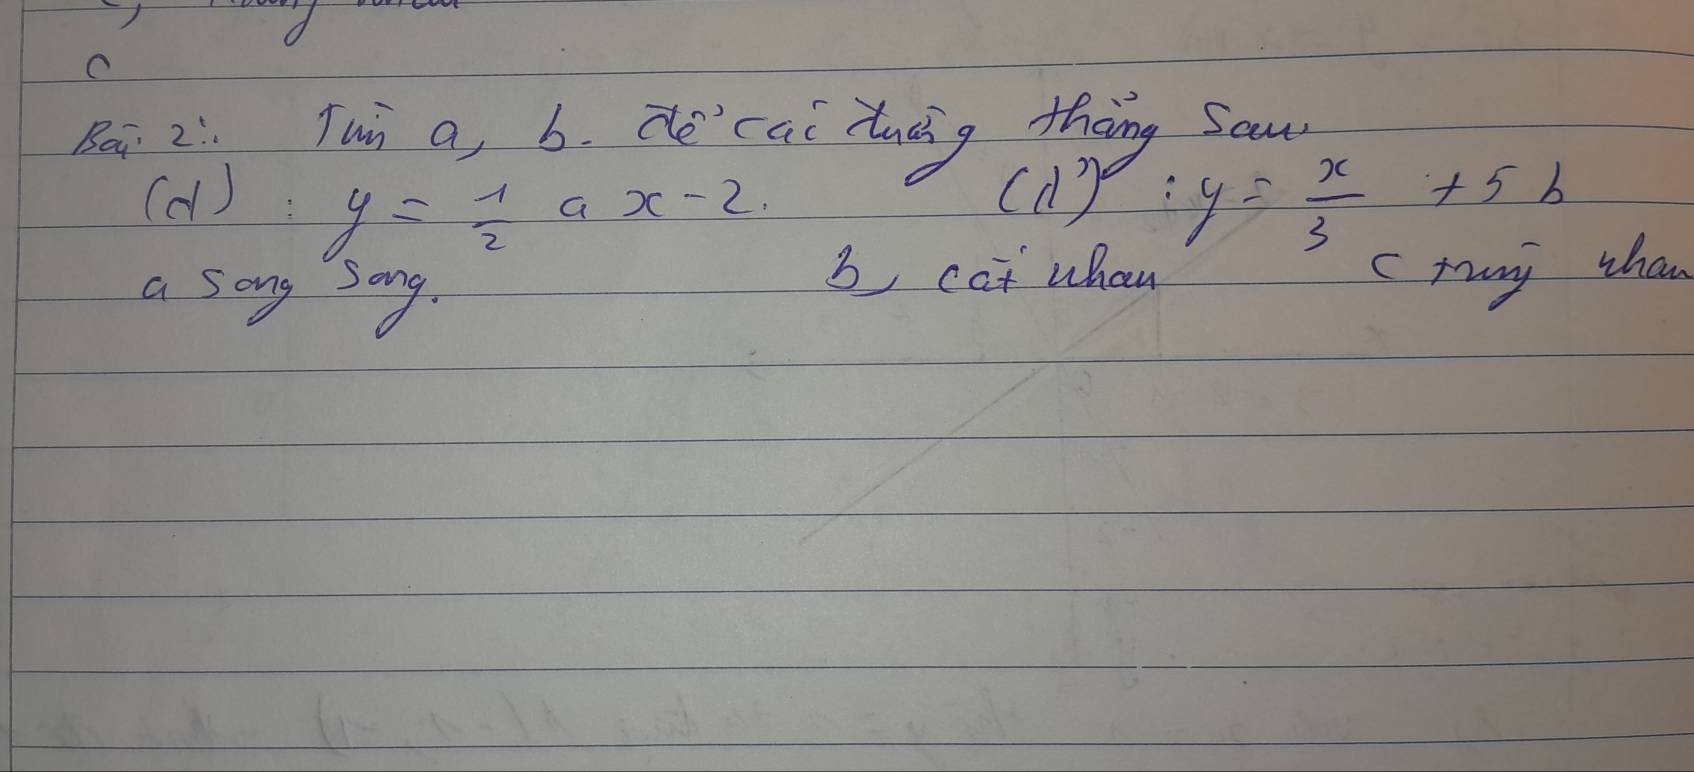 c
Bài 2: Tìm a, b. để các đường thẳng sau
(d) : y = 1/2 a x - 2. (d') : y = x/3 + 5 b
a song song. b, cắt nhau c trùng nhau